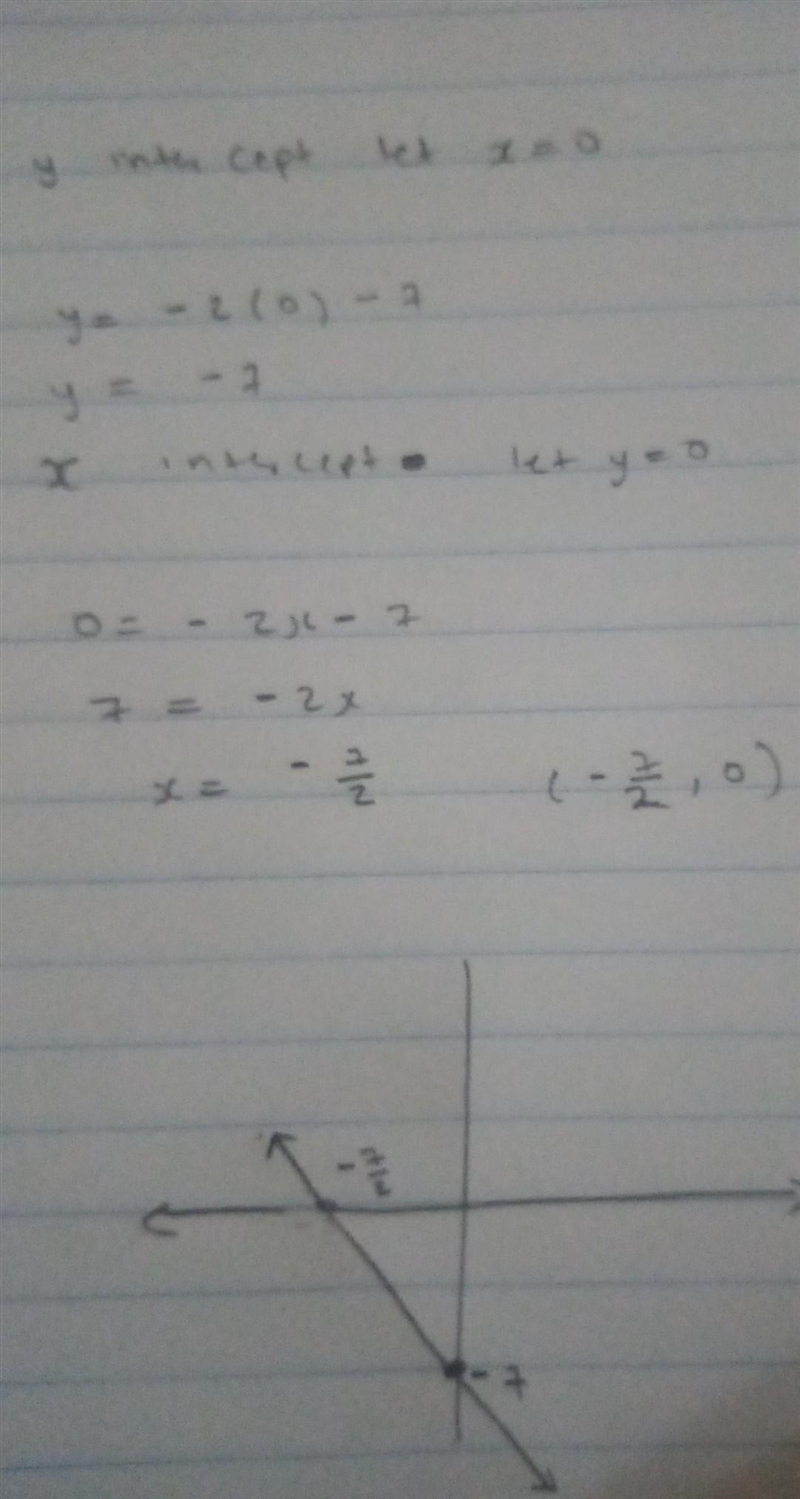 y intercept let x = 0
y = - 2 (0) - 7
y = - 7
x intercept let y = 0
0 = - 2x - 7
7 = - 2x
x = - 7/2 (- 7/2, 0)
- 7/2
- 7